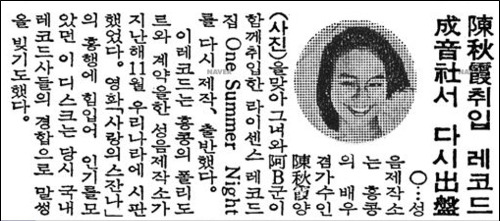 陳秋霞취입 레코드
成音社서 다시出盤
○…성
음제작소
는 홍콩
의 배우
겸가수인
陳秋霞양
(사진)을맞아 그녀와 阿B군이
함께취입한 라이센스 레코드
집 One Summer Night
를 다시 제작、출반했다。
이레코드는 홍콩의 폴리도
르와 계약을한 성음제작소가
지난해11월 우리나라에 시판
했었다。영화「사랑의스잔나」
의 흥행에 힘입어 인기를모
았던 이 디스크는 당시 국내
레코드사들의 경합으로 말썽
을 빚기도했다。
NAVER